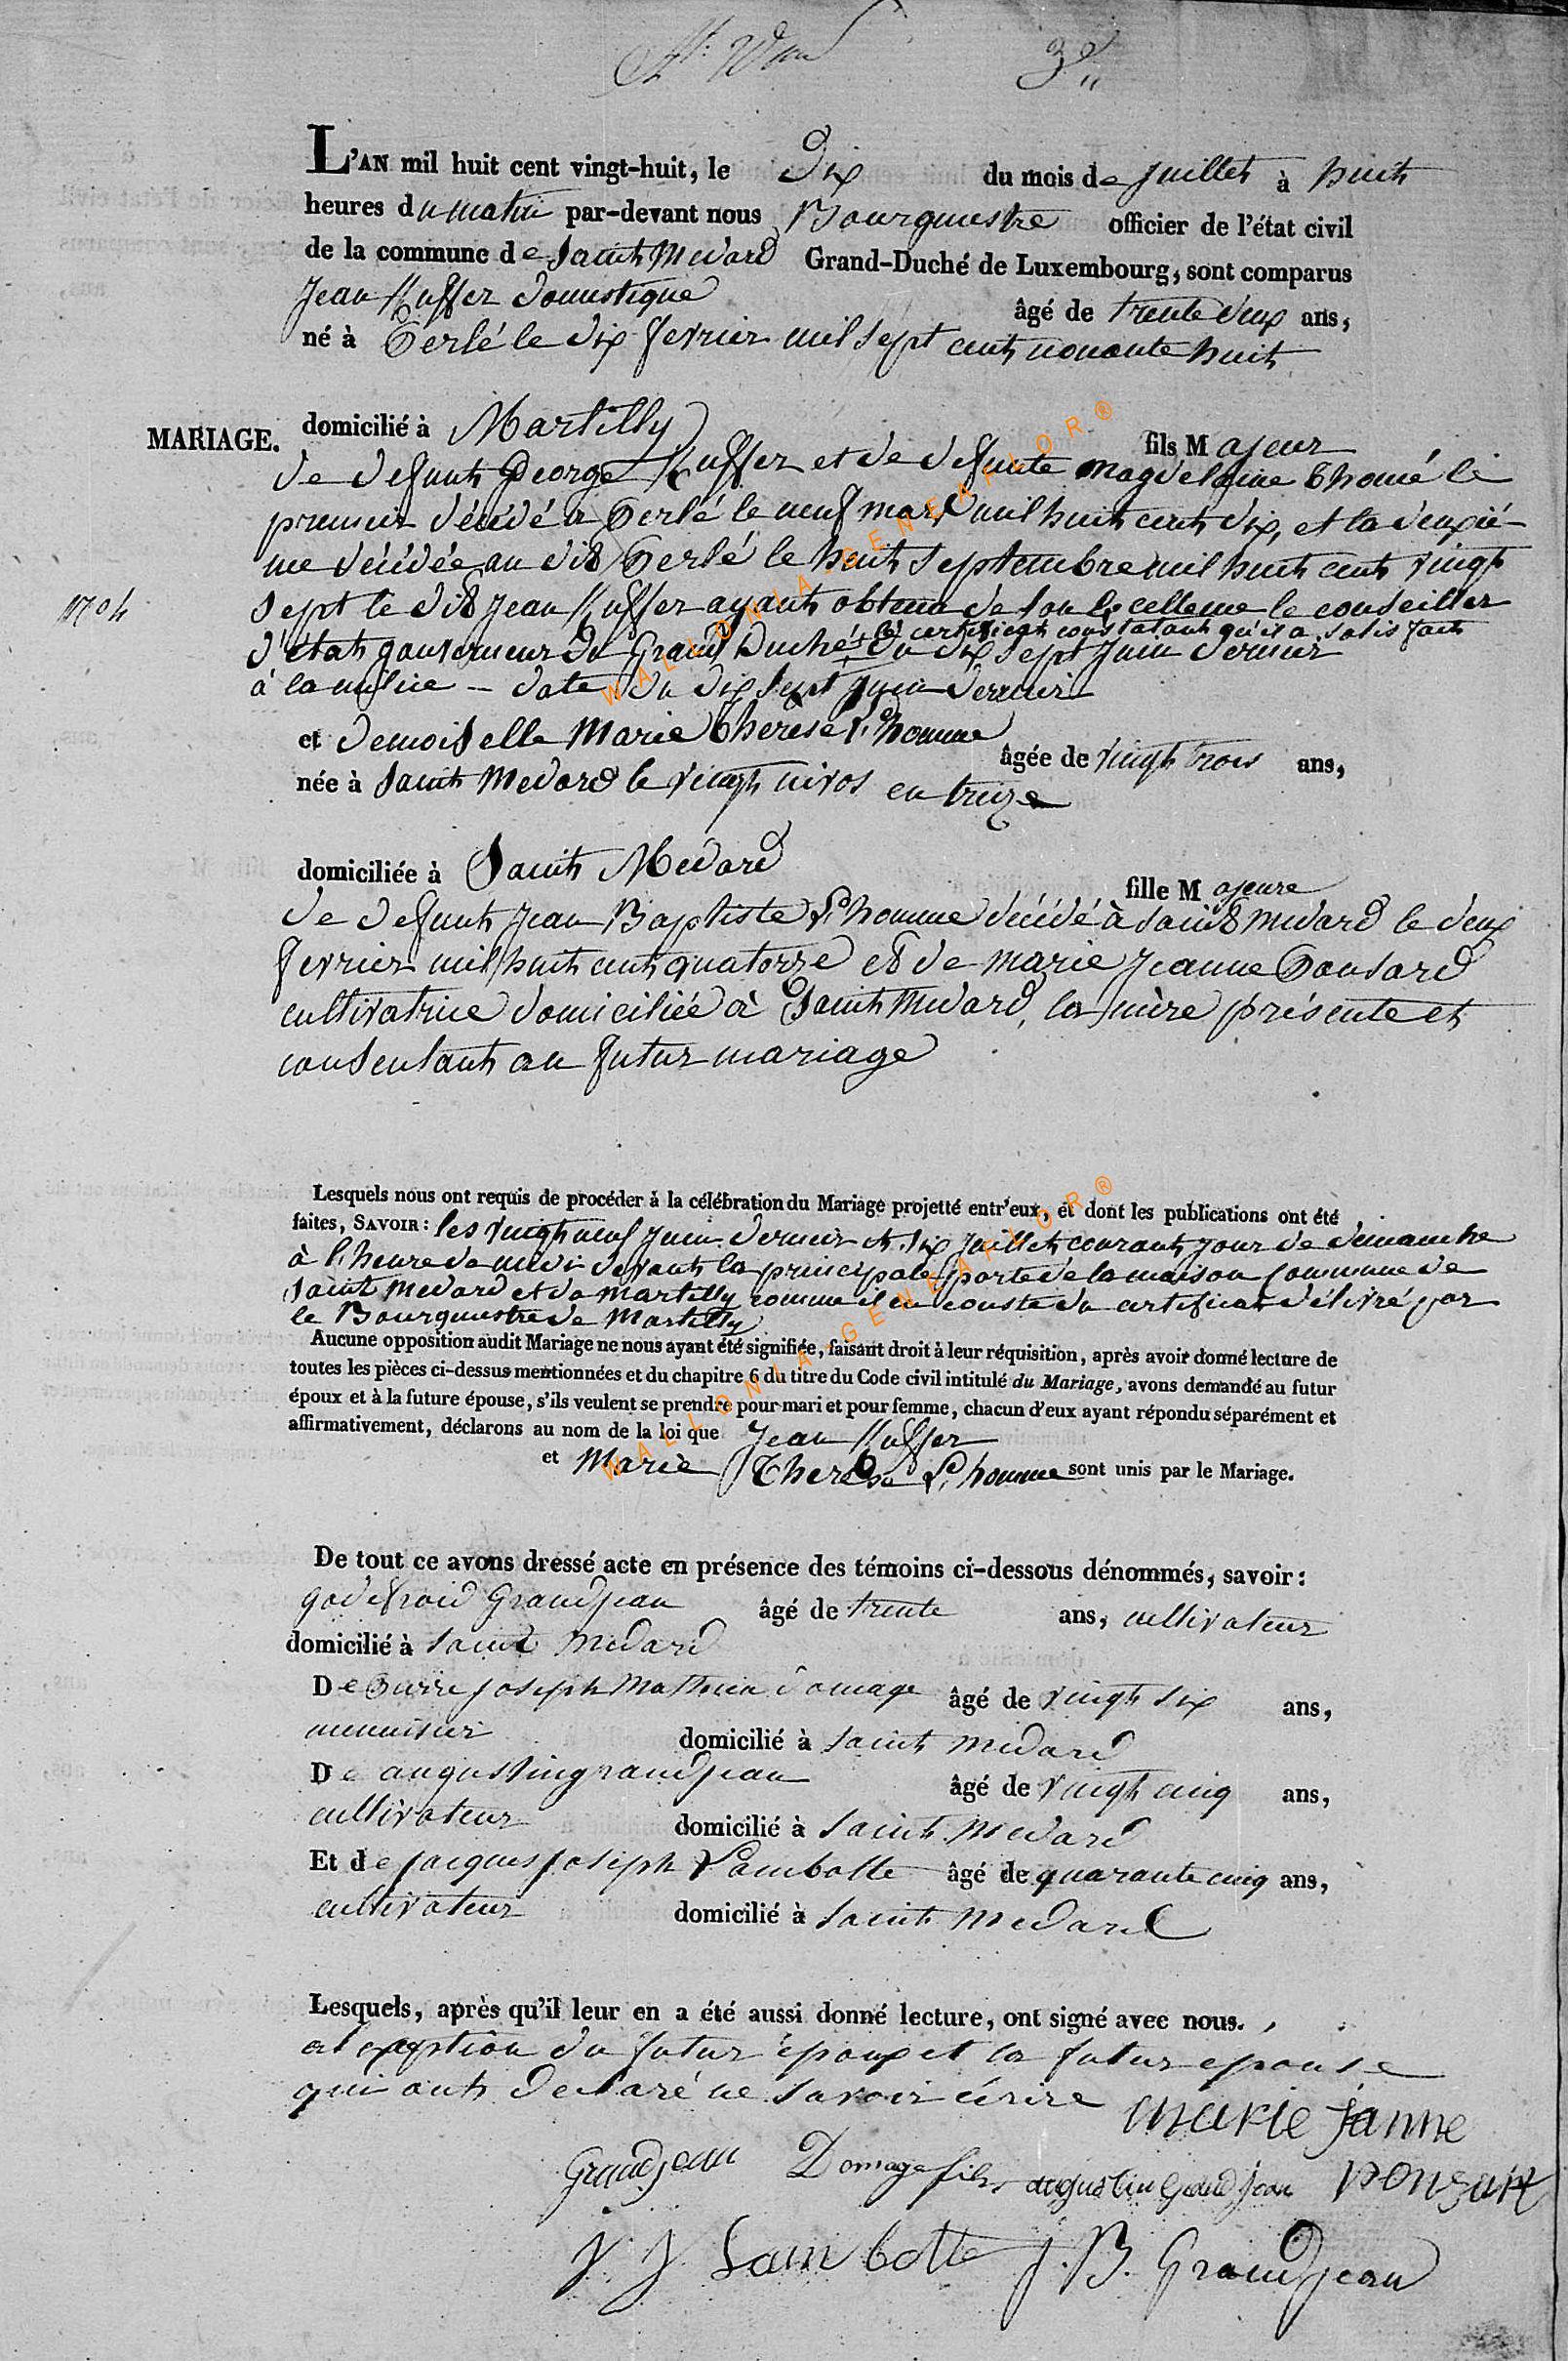 3
L'AN mil huit cent vingt-huit, le Dix du mois de juillet à huit
heures du matin par-devant nous Bourguestre officier de l'état civil
de la commune de Saint Medard Grand-Duché de Luxembourg, sont comparus
Jean Kuffer domestique âgé de trente deux ans,
né à Perlé le dix fevrier mil sept cent nonante huit
MARIAGE.
domicilié à Martilly fils Majeur
de defunt George Kuffer et de defunte magdelaine thomé le
premier décédé a Perlé le neuf mars mil huit cent dix, et la deuxié-
me décédée au dit Perlé le huit septembre mil huit cent vingt
sept le dit jean Kuffer ayant obtenu de son Excellence le conseiller
le certificat constatant qu'il a satisfait
d'état gouverneur du Grand Duché + du dix sept juin dernier
à la milice - date du dix sept juin dernier
et demoiselle Marie therese L'homme âgée de vingt trois ans,
née à Saint Medard le vingt nivos en treize
domiciliée à Saint Medard fille Majeure
de defunt jean Baptiste L'homme décédé à Saint medard le deux
fevrier mil huit cent quatorze et de marie jeanne Ponsard
cultivatrice domiciliée à Saint Medard, la mère présente et
consentant au futur mariage
Lesquels nous ont requis de procéder à la célébration du Mariage projetté entr'eux, et dont les publications ont été
faites, SAVOIR: les vingt neuf juin dernier et six juillet courant jour de dimanche
à l'heure de midi devant la principale porte de la maison commune de
Saint Medard et de Martilly comme il en conste du certificat délivré par
le Bourguestre de Martilly
Aucune opposition audit Mariage ne nous ayant été signifiée, faisant droit à leur réquisition, après avoir donné lecture de
toutes les pièces ci-dessus mentionnées et du chapitre 6 du titre du Code civil intitulé du Mariage, avons demandé au futur
époux et à la future épouse, s'ils veulent se prendre pour mari et pour femme, chacun d'eux ayant répondu séparément et
affirmativement, déclarons au nom de la loi que Jean Kuffer
et Marie Therese L'homme sont unis par le Mariage.
De tout ce avons dressé acte en présence des témoins ci-dessous dénommés, savoir:
godefroid Grandjean âgé de trente ans, cultivateur
domicilié à Saint Medard
De Pierre joseph Mathieu Domage âgé de vingt six ans,
menuisier domicilié à Saint Medard
De augustin grandjean âgé de vingt cinq ans,
cultivateur domicilié à Saint Medard
Et de jacques joseph Lambotte âgé de quarante cinq ans,
cultivateur domicilié à Saint Medard
Lesquels, après qu'il leur en a été aussi donné lecture, ont signé avec nous.
al exception du futur époux et la futur epouse
qui ont declaré ne savoir écrire marie janne
Grandjean Domage fils augustin Grandjean ponsart
J. J. Lambotte J. B. Grandjean
WALLONIA-GENEAFLOR®
WALLONIA-GENEAFLOR®